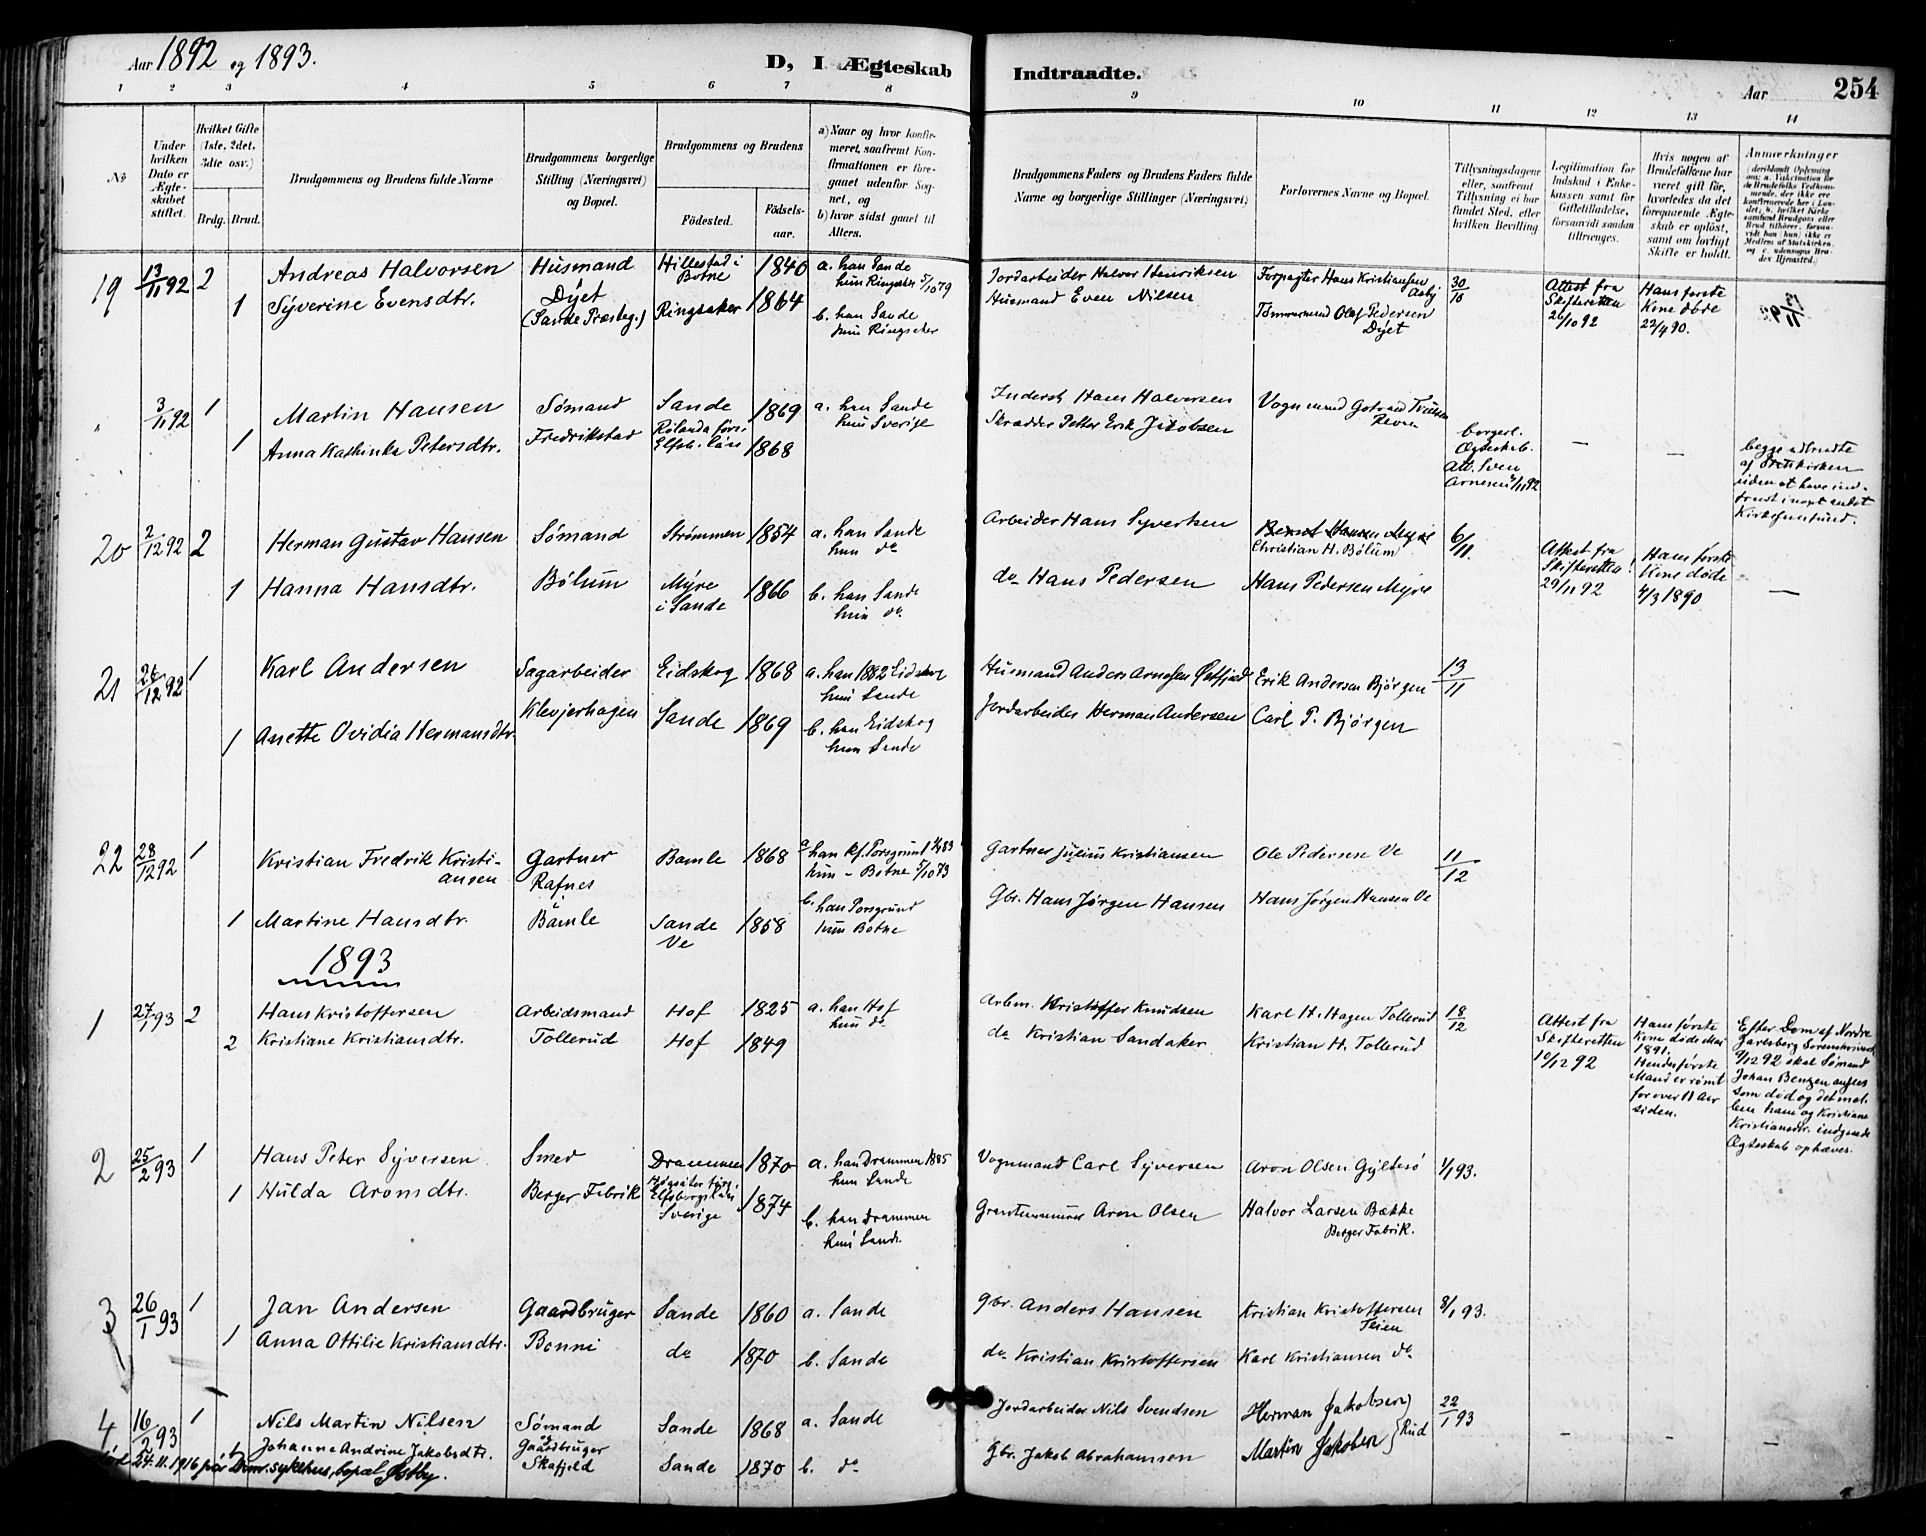 Aar 1892 og 1893.
D, I Ægteskab
Indtraadte.
Aar
254
1 2 3 4 5 6 7 8 9 10 11 12 13 14
No
Under hvilken Dato er Ægteskabet stiftet.
Hvilket Gifte (1ste, 2det, 3die osv.)
Brdg. Brud.
Brudgommens og Brudens fulde Navne
Brudgommens borgerlige Stilling (Næringsvei) og Bopæl.
Brudgommens og Brudens
Fødested.
Fødsels-aar.
a) Naar og hvor konfirmeret, saafremt Konfirmationen er foregaaet udenfor Sognet, og
b) hvor sidst gaaet til Alters.
Brudgommens Faders og Brudens Faders fulde Navne og borgerlige Stillinger (Næringsvei)
Forlovernes Navne og Bopæl.
Tillysningsdagene eller, saafremt Tillysning ei har fundet Sted, efter hvilken Bevilling
Legitimation for Indskud i Enkekassen samt for Giftetilladelse, forsaavidt saadan tiltrænges.
Hvis nogen af Brudefolkene har været gift før, hvorledes da det foregaaende Ægteskab er opløst, samt om lovligt Skifte er holdt.
Anmærkninger
19 13/11 92 2 Andreas Halvorsen Husmand Hillestad i Botne 1840 a. han Sande
hun Ringsaker 5/10 79
1 Syverine Evensdtr. Dyet (Sande Præsteg.) Ringsaker 1864 b. han Sande
hun Ringsaker
Jordarbeider Halvor Henriksen Forpagter Hans Kristiansen Aasby 30/10 Attest fra Skifteretten 26/10 92 Hans første Kone døde 22/4 90.
Husmand Even Nilsen Tømmermand Olaf Pedersen Dyet
" 3/11 92 1 Martin Hansen Sømand Sande 1869 a. han Sande
hun Sverige
1 Anna Kathinka Petersdtr. Fredrikstad Rölanda førs. Elfsb. län 1868
Inderst Hans Halvorsen Vognmand
Skrædder Petter Erik Jakobsen
borgerl. Ægteskab. Att. Sven Arnesen 3/11 92 — —
begge udtraadte af Statskirken uden at have indtraadt i noget andet Kirkesamfund.
20 2/12 92 2 Herman Gustav Hansen Sømand Strømmen 1854 a. han Sande
hun do
1 Hanna Hansdtr. Bølum Myre i Sande 1866 b. han Sande
hun do.
Arbeider Hans Syvertsen Bernt Hansen Myre
Christian H. Bølum 6/11
do Hans Pedersen Hans Pedersen Myre
Attest fra Skifteretten 29/11 92 Hans første Kone døde 4/3 1890 —
21 26/12 92 1 Karl Andersen Sagarbeider Eidskog 1868 a. han 1882 Eidskog
hun Sande
1 Anette Ovidia Hermansdtr. Klevjerhagen Sande 1869 b. han Eidskog
hun Sande
Husmand Anders Arnesen Erik Andersen Bjørgen 13/11
Jordarbeider Herman Andersen Carl P. Bjørgen
22 28/12 92 1 Kristian Fredrik Kristiansen Gartner Rafnes Bamle 1868 a. han kf. Porsgrund 1/4 83
hun - Botne 5/10 73
1 Martine Hansdtr. Bamle Sande Ve 1858 b. han Porsgrund
hun Botne
Gartner Julius Kristiansen Ole Pedersen Ve 11/12
Gbr. Hans Jørgen Hansen Hans Jørgen Hansen Ve
1893
1 27/1 93 2 Hans Kristoffersen Arbeidsmand Hof 1825 a. han Hof
hun do
2 Kristiane Kristiansdtr. Tollerud Hof 1849
Arbm. Kristoffer Knudsen Karl H. Hagen Tollerud 18/12
do Kristian Sandaker Kristian H. Tollerud
Attest fra Skifteretten 10/12 92
Hans første Kone døde Mai 1891. Hendes første Mand er rømt for over 11 Aar siden.
Efter Dom af Nordre Jarlsberg Sorenskriveri 9/12 92 skal Sømand Johan Bentzen ansees som død og det mellem ham og Kristiane Kristiansdtr. indgaaede Ægteskab ophæves.
2 25/2 93 1 Hans Peter Syversen Smed Drammen 1870 a. han Drammen 1885
hun Sande
1 Hulda Aronsdtr. Berger Fabrik Högsäter förs. Elfsborgs län Sverige 1874 b. han Drammen
hun Sande.
Vognmand Carl Syversen Aron Olsen Gyltesø 1/1 93.
Aron Olsen Halvor Larsen Bække
Berger Fabrik.
3 26/1 93 1 Jan Andersen Gaardbruger Sande 1860 a. Sande
1 Anna Ottilie Kristiansdtr. Bonni do 1870 b. Sande
Gbr. Anders Hansen Kristian Kristoffersen Teien 8/1 93.
do Kristian Kristoffersen Karl Kristiansen do
4 16/2 93 1 Nils Martin Nilsen Sømand Sande 1868 a. Sande
1 Johanne Andrine Jakobsdtr. og Gaardbruger Skafjeld Sande 1870 b. do
død 24.11.1916 på Drm. sykehus, bopæl Østby.
Jordarbeider Nils Svendsen Herman Jakobsen 22/1 93
Gbr. Jakob Abrahamsen Martin Jakobsen } Rud — — —